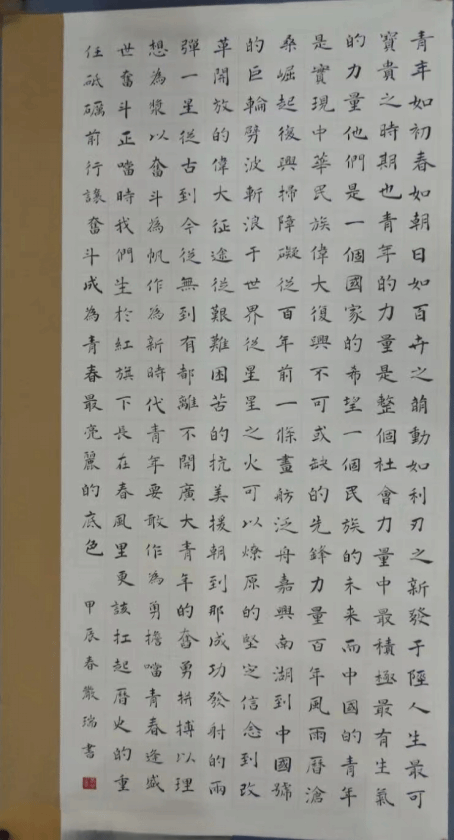 青年如初春如朝日如百卉之萌動如利刃之新發于硎人生最可
寶貴之時期也青年的力量是整個社會力量中最積極最有生氣
的力量他們是一個國家的希望一個民族的未來而中國的青年
是實現中華民族偉大復興不可或缺的先鋒力量百年風雨曆滄
桑崛起復興掃障礙從百年前一條畫舫泛舟嘉興南湖到中國號
的巨輪劈波斬浪于世界從星星之火可以燎原的堅定信念到改
革開放的偉大征途從艱難困苦的抗美援朝到那成功發射的兩
彈一星從古到今從無到有都離不開廣大青年的奮勇拼搏以理
想為槳以奮斗為帆作為新時代青年要敢作為勇擔噹青春逢盛
世奮斗正噹時我們生於紅旗下長在春風里更該扛起曆史的重
任砥礪前行讓奮斗成為青春最亮麗的底色
甲辰春嚴瑞書